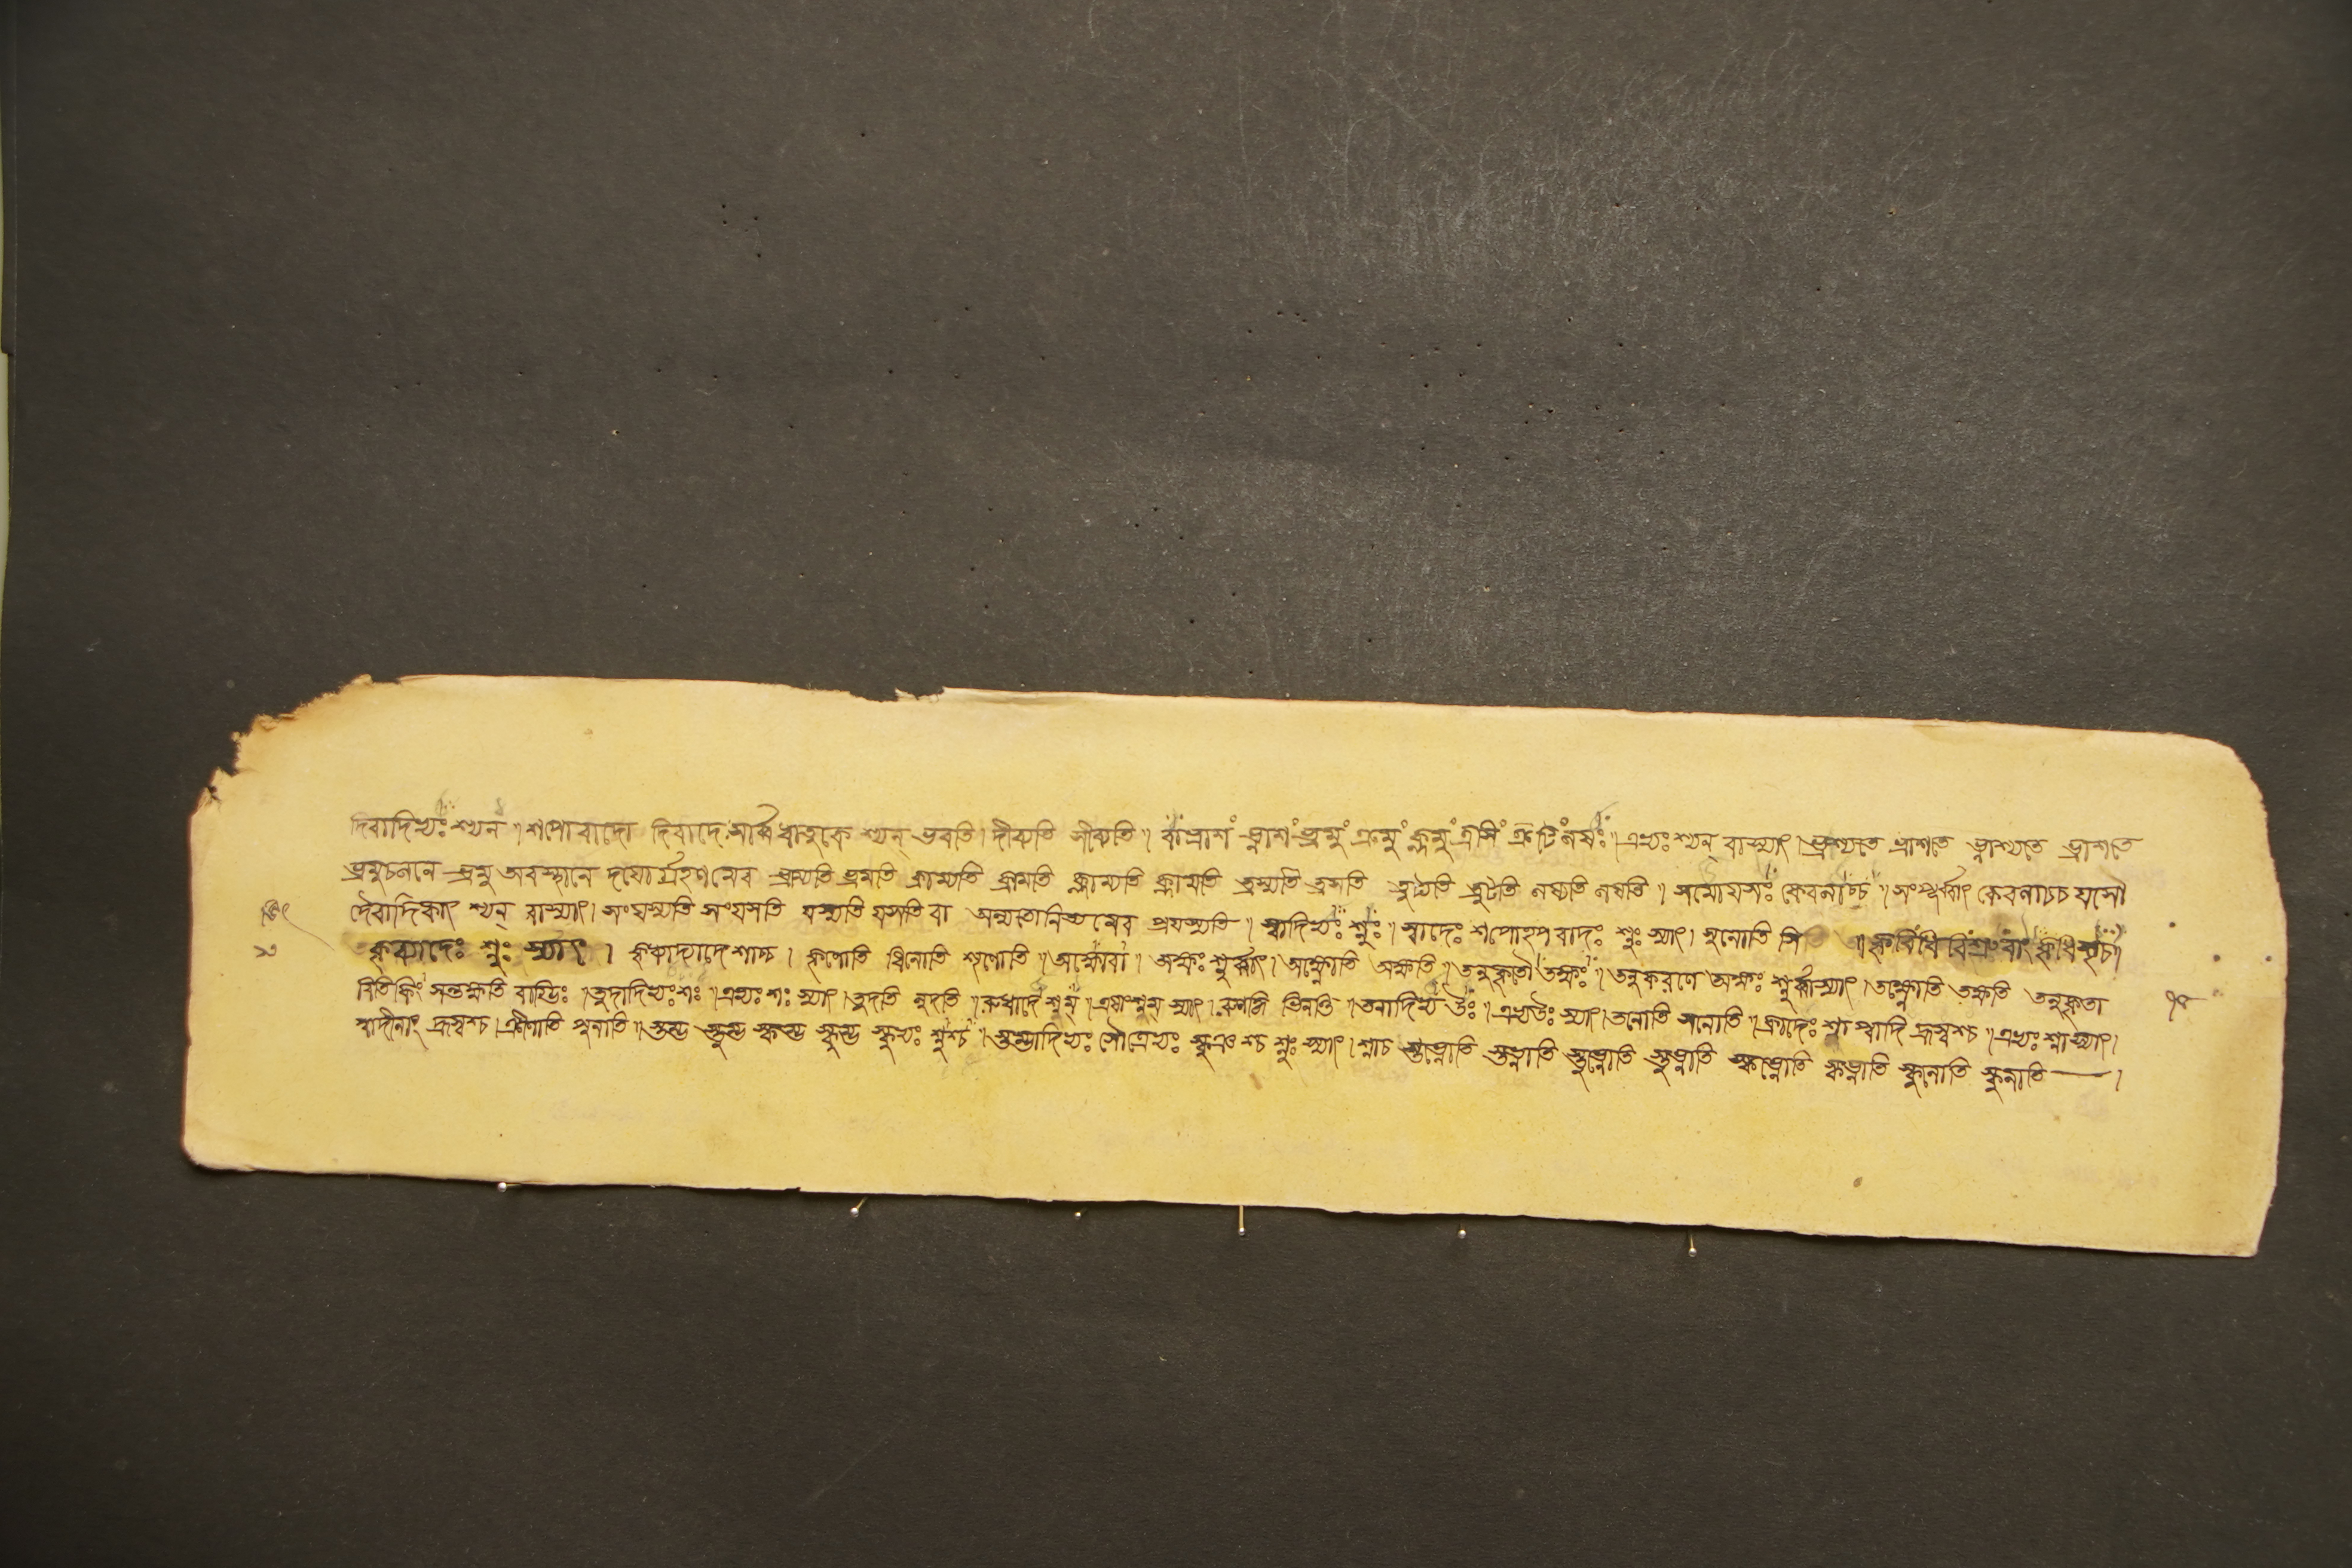 দিবাদিভ্যঃ শ্যন্ । শপোবাদো দিবাদেঃ সার্ব্বধাতুকে শ্যন্ ভবতি । দীব্যতি সীব্যতি । বা ভ্রাশ ভ্লাশ ভ্রমু ক্রমু ক্লমু ত্রসি ত্রুটি লষঃ । এভ্যঃ শ্যন্ বাস্যাৎ । ভ্রাশ্যতে ভ্রাশতে ভ্লাশ্যতে ভ্লাশতে
ভ্রমুচলনে ভ্রমু অবস্থানে দ্বয়োর্গ্রহণমেব ভ্রাম্যতি ভ্রমতি ক্রাম্যতি ক্রামতি ক্লাম্যতি ক্লামতি ত্রস্যতি ত্রসতি ত্রুট্যতি ত্রুটতি লষ্যতি লষতি । সমোযসঃ কেবলাচ্চ । সংপূর্ব্বাৎ কেবলাচ্চ যসো
দৈবাদিকাৎ শ্যন্ বাস্যাৎ । সংযস্যতি সংযসতি যস্যতি যসতি বা অন্যতোনিত্যমেব প্রযস্যতি । স্বাদিভ্যঃ শ্নুঃ । স্বাদেঃ শপোহপবাদঃ শ্নুঃ স্যাৎ । সুনোতি সি । কৃবি ধিবি শ্রুবাং কৃধিশৃচ ।
কৃব্যাদেঃ শ্নুঃ স্যাৎ । কৃত্বাদ্যাদেশাশ্চ । কৃণোতি ধিনোতি শৃণোতি । অক্ষোবা । অক্ষঃ শ্নুর্ব্বাস্যাৎ । অক্ষ্ণোতি অক্ষতি । তনুকৃতৌ তক্ষঃ । তনুকরণে তক্ষঃ শ্নুর্ব্বাস্যাৎ । তক্ষ্ণোতি তক্ষতি তনুকৃতা
বিতি কিং সন্তক্ষতি বাগ্ভিঃ । তুদাদিভ্যঃ শঃ । এভ্যঃ শঃ স্যাৎ । তুদতি নুদতি । রুধাদেঃ শ্নম্ । এষাং শ্নম্ স্যাৎ । রুণদ্ধি ভিনত্তি । তনাদিভ্য উঃ । এভ্য উঃ স্যাৎ । তনোতি সনোতি । ক্র্যাদেঃ শ্না প্বাদি হ্রস্বশ্চ । এভ্যঃ শ্না স্যাৎ ।
প্বাদীনাং হ্রস্বশ্চ । ক্রীণাতি পুনাতি । স্তম্ভু স্তুম্ভু স্কম্ভু স্কুম্ভু স্কুভ্যঃ শ্নুশ্চ । স্তম্ভ্বাদিভ্যঃ সৌত্রেভ্যঃ স্কুঞশ্চ শ্নুঃ স্যাৎ । শ্নাচ স্তভ্নোতি স্তভ্নাতি স্তুভ্নোতি স্তুভ্নাতি স্কভ্নোতি স্কভ্নাতি স্কুনোতি স্কুনাতি ।